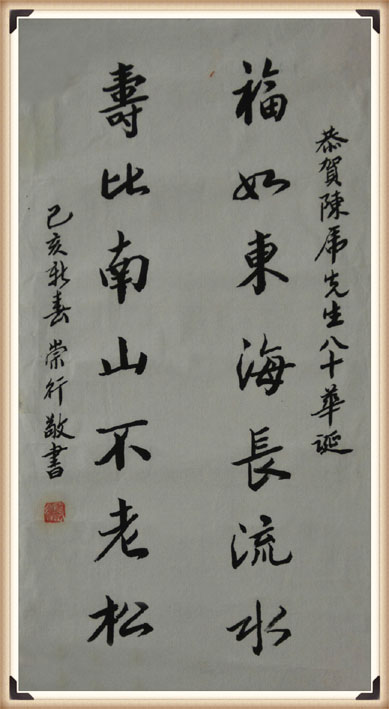 恭賀陳席先生八十華誕
福如東海長流水
壽比南山不老松
己亥新春 崇行敬書